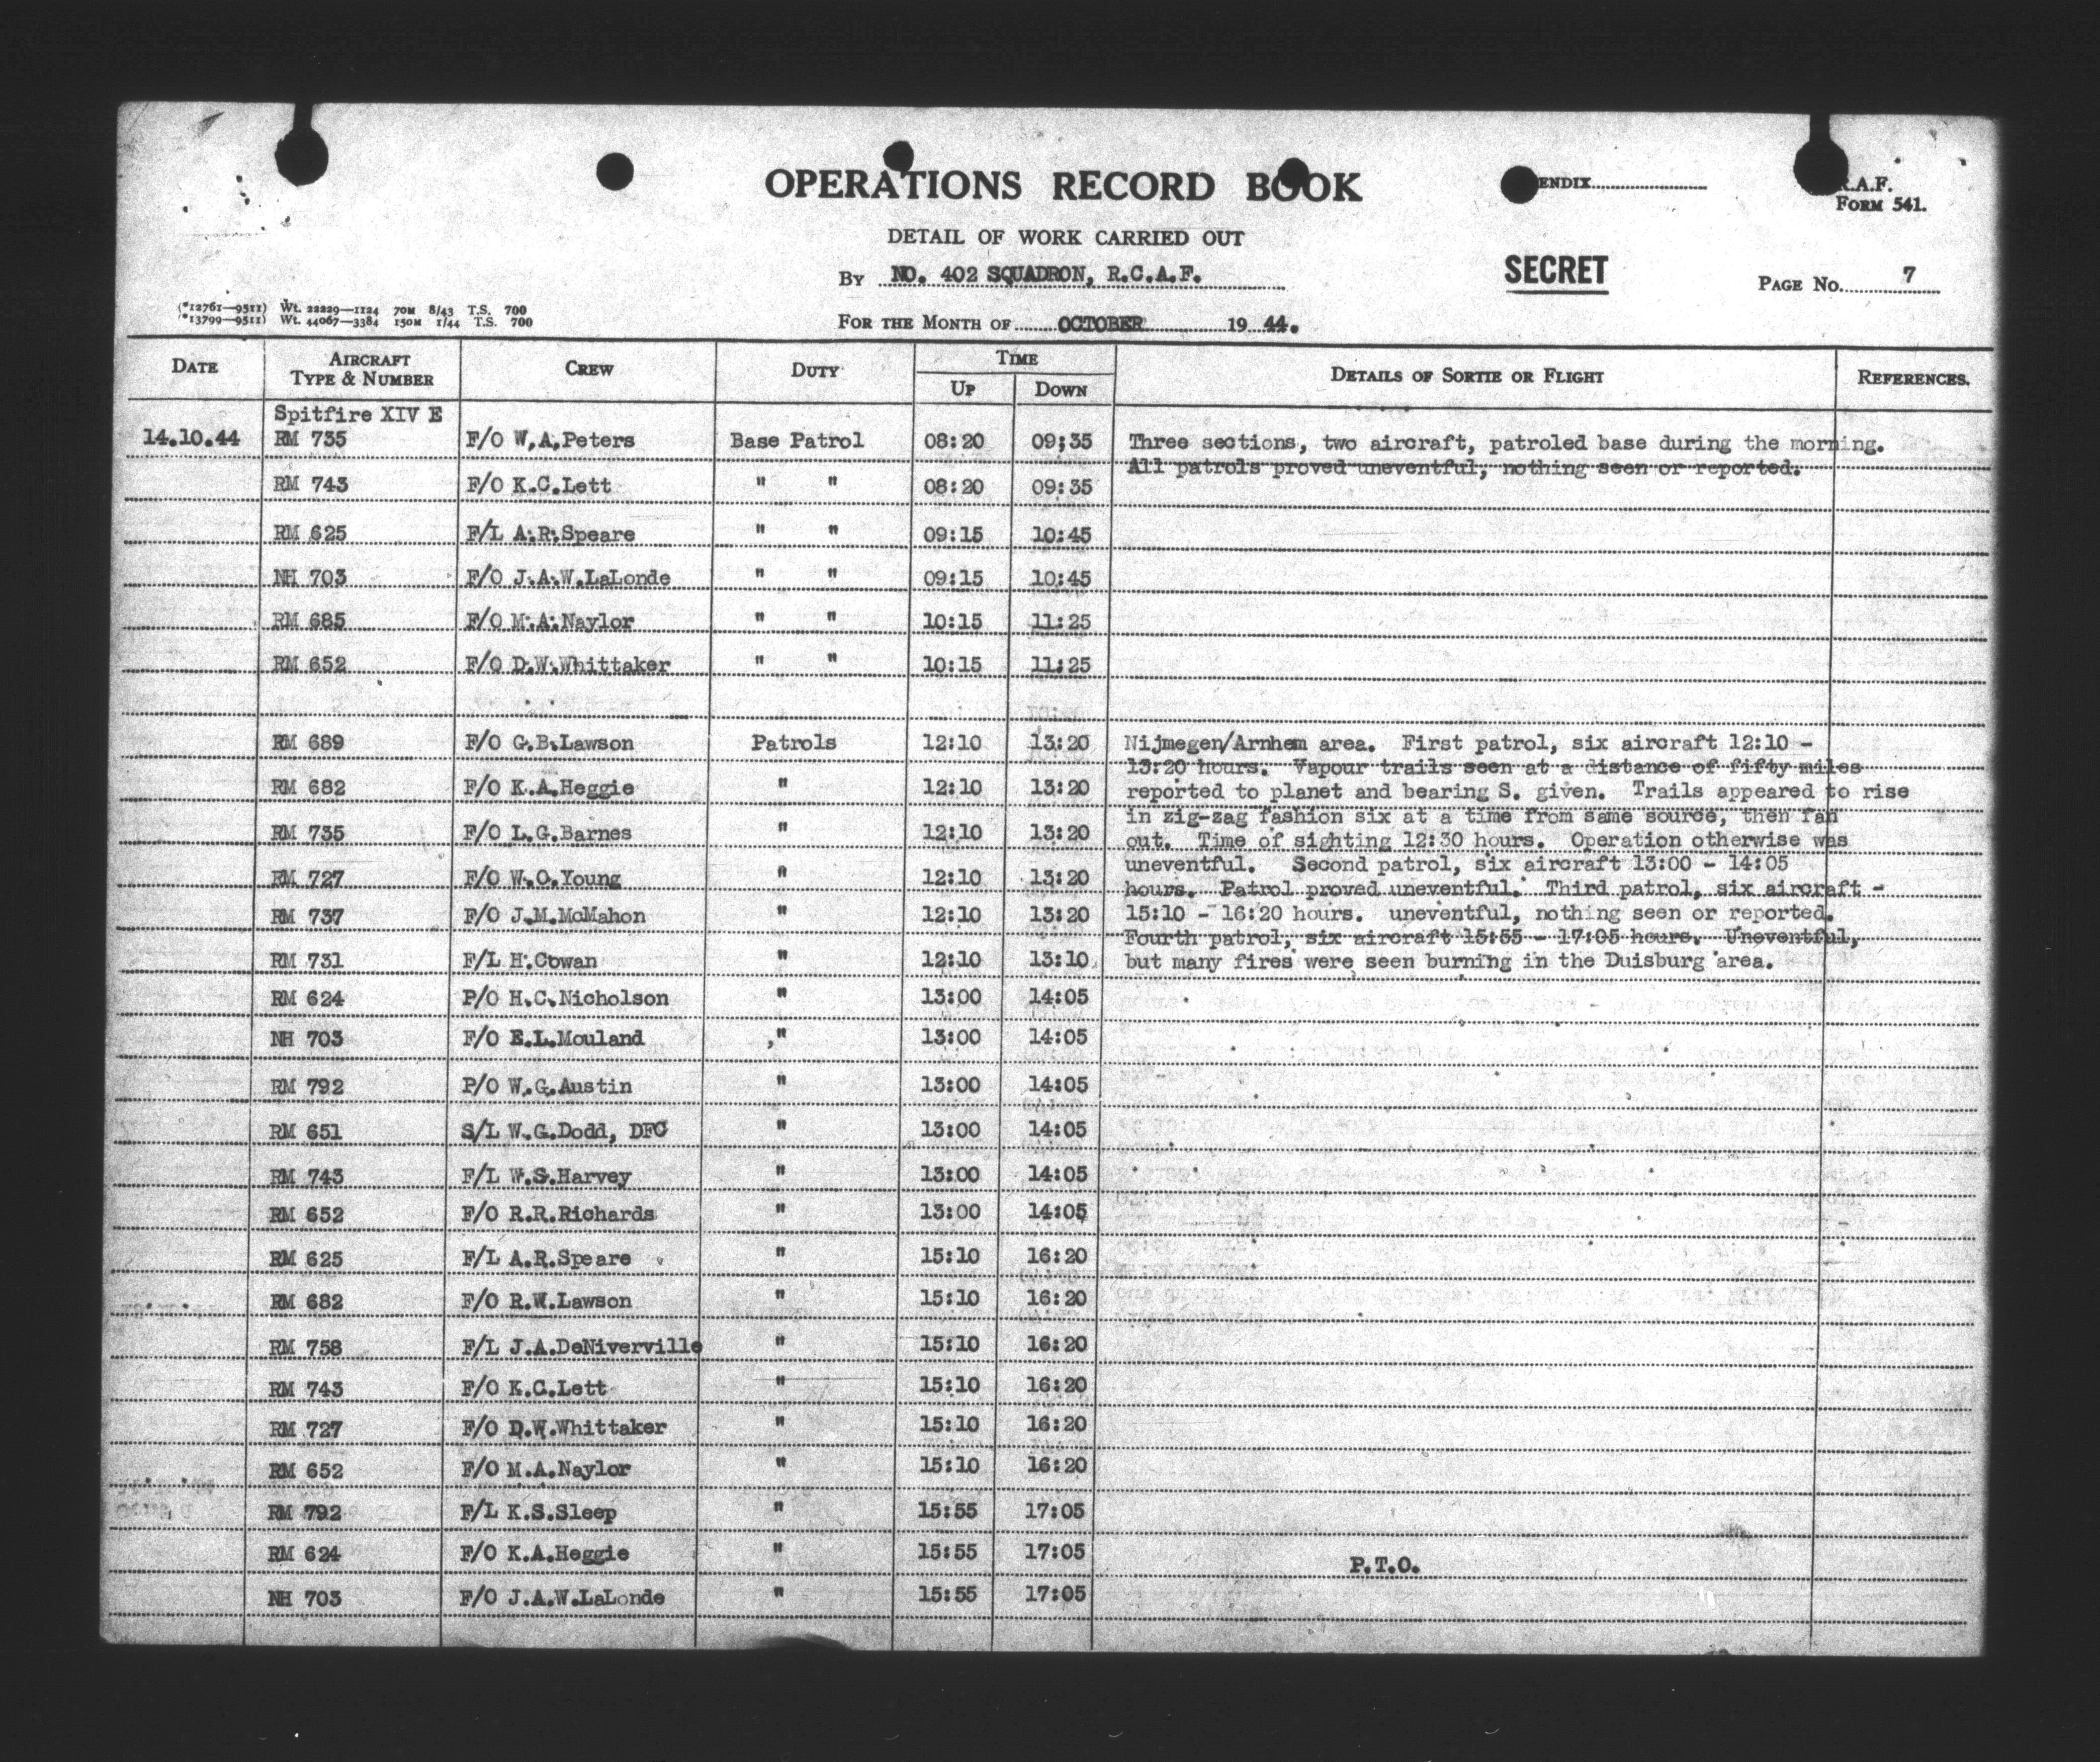 OPERATIONS RECORD BOOK
ENDIX
R.A.F.
FORM 541.
DETAIL OF WORK CARRIED OUT
By NO. 402 SQUADRON, R.C.A.F.
SECRET
PAGE No. 7
(*12761—9511) Wt. 22229—1124 70M 8/43 T.S. 700
*13799—9511) Wt. 44067—3384 150M 1/44 T.S. 700
FOR THE MONTH OF OCTOBER 19 44.
DATE AIRCRAFT TYPE & NUMBER CREW DUTY TIME UP DOWN DETAILS OF SORTIE OR FLIGHT REFERENCES.
Spitfire XIV E
14.10.44 RM 735 F/O W.A.Peters Base Patrol 08:20 09;35 Three sections, two aircraft, patroled base during the morning.
All patrols proved uneventful, nothing seen or reported.
RM 743 F/O K.C.Lett " " 08:20 09:35
RM 625 F/L A.R.Speare " " 09:15 10:45
NH 703 F/O J.A.W.LaLonde " " 09:15 10:45
RM 685 F/O M.A.Naylor " " 10:15 11:25
RM 652 F/O D.W.Whittaker " " 10:15 11:25
RM 689 F/O G.B.Lawson Patrols 12:10 13:20 Nijmegen/Arnhem area. First patrol, six aircraft 12:10 -
13:20 hours. Vapour trails seen at a distance of fifty miles
RM 682 F/O K.A.Heggie " 12:10 13:20 reported to planet and bearing S. given. Trails appeared to rise
in zig-zag fashion six at a time from same source, then fan
RM 735 F/O L.G.Barnes " 12:10 13:20 out. Time of sighting 12:30 hours. Operation otherwise was
uneventful. Second patrol, six aircraft 13:00 - 14:05
RM 727 F/O W.O.Young " 12:10 13:20 hours. Patrol proved uneventful. Third patrol, six aircraft -
RM 737 F/O J.M.McMahon " 12:10 13:20 15:10 - 16:20 hours. uneventful, nothing seen or reported.
Fourth patrol, six aircraft 15:55 - 17:05 hours. Uneventful,
RM 731 F/L H.Cowan " 12:10 13:10 but many fires were seen burning in the Duisburg area.
RM 624 P/O H.C.Nicholson " 13:00 14:05
NH 703 F/O E.L.Mouland " 13:00 14:05
RM 792 P/O W.G.Austin " 13:00 14:05
RM 651 S/L W.G.Dodd, DFC " 13:00 14:05
RM 743 F/L W.S.Harvey " 13:00 14:05
RM 652 F/O R.R.Richards " 13:00 14:05
RM 625 F/L A.R.Speare " 15:10 16:20
RM 682 F/O R.W.Lawson " 15:10 16:20
RM 758 F/L J.A.DeNiverville " 15:10 16:20
RM 743 F/O K.C.Lett " 15:10 16:20
RM 727 F/O D.W.Whittaker " 15:10 16:20
RM 652 F/O M.A.Naylor " 15:10 16:20
RM 792 F/L K.S.Sleep " 15:55 17:05
RM 624 F/O K.A.Heggie " 15:55 17:05
P.T.O.
NH 703 F/O J.A.W.LaLonde " 15:55 17:05